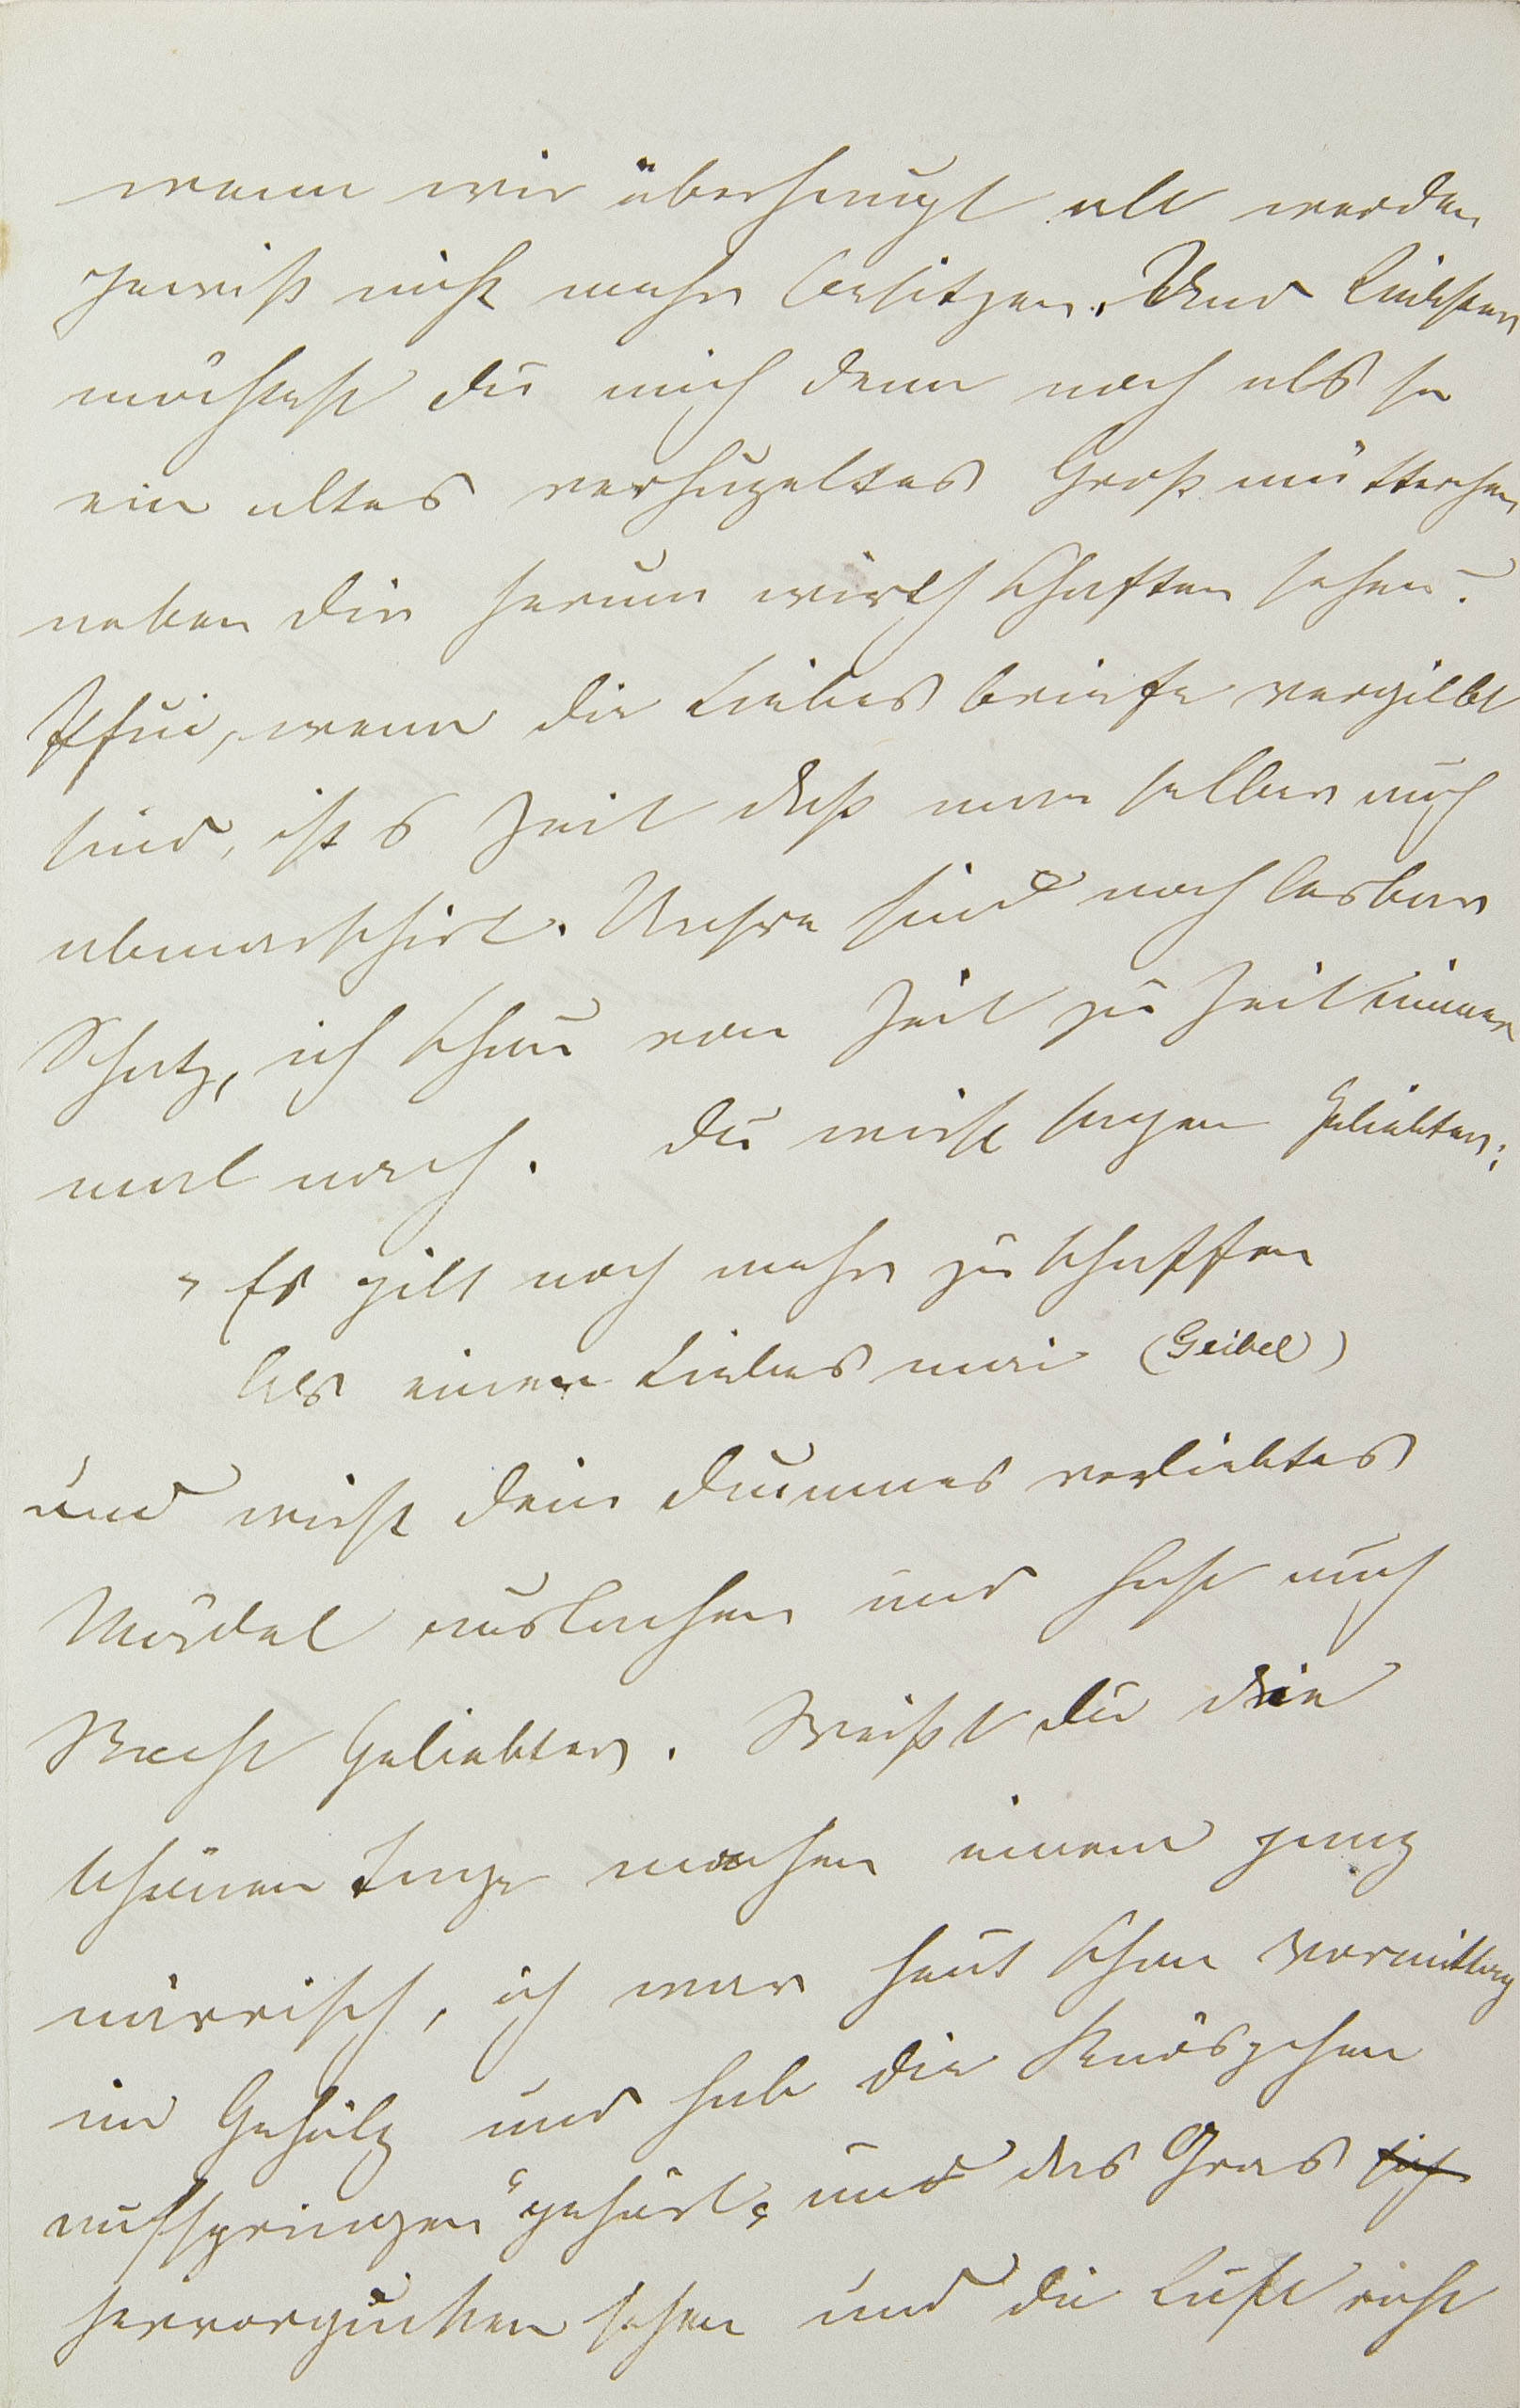 wenn wir überhaupt alt werden
gewiß nicht mehr besitzen. Und Liebster
möchtest du mich denn noch als so
ein altes verhuzeltes Großmütterchen
neben dir herum wirthschaften sehen?
Pfui, wenn die Liebesbriefe vergilbt
sind, ist's Zeit daß man selber auch
abmarschirt. Unsre sind noch lesbar
Schatz, ich schau von Zeit zu Zeit immer
mal nach. Du wirst sagen Geliebter;
„Es gilt noch mehr zu schaffen
Als einen Liebesmai (Geibel)
und wirst dein dummes verliebtes
Mädel auslachen und hast auch
Recht Geliebter. Weißt du die
schönen Tage machen einem ganz
närrisch, ich war heut schon Vormittag
im Gehölz und hab die Knöspchen
aufspringen „gehört“ und das Gras sich
hervorgucken sehen und die Luft riecht